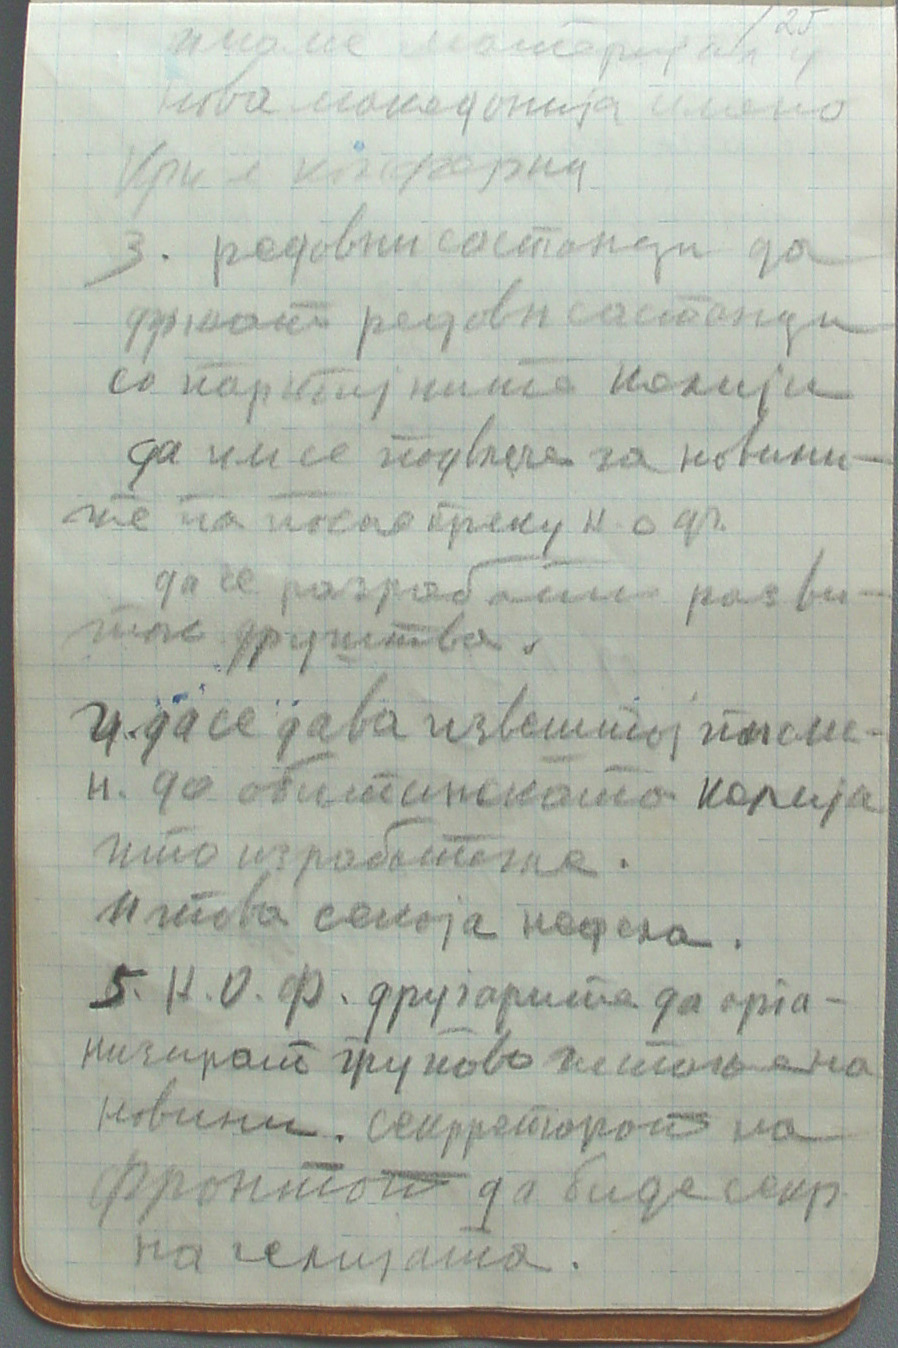 25
имаме материјал у
Нова македонија имено
3. редовни состанци да
држат редовн состанци
со партијните келији
да им се подвлече за новини-
те па после преку н. о фр.
да се разработи разви-
ток друштва.
4. да се дава извештај писме-
н. до општинската келија
што изработиле.
и това секоја недела.
5. Н. О. Ф. другарите да орга-
низират групово читање на
новини. секрретарот на
Фронтот да биде секр.
на челијата.